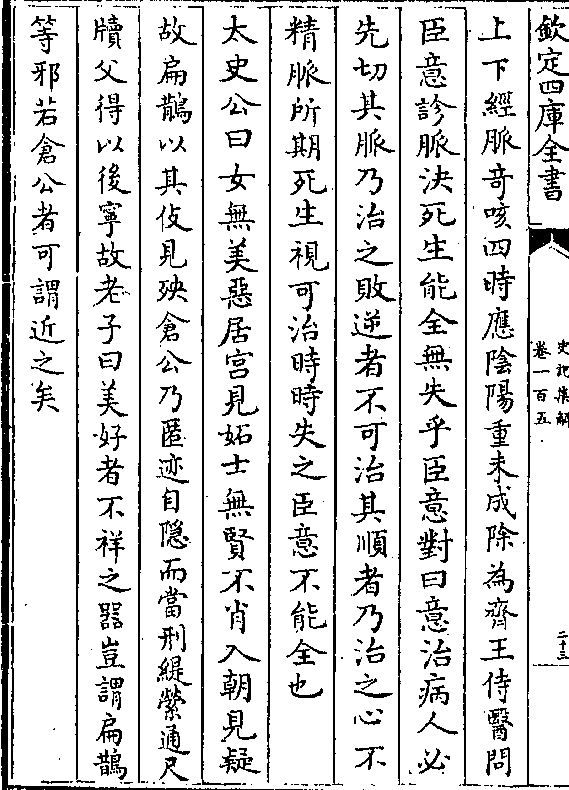 欽定四庫全書
史記集解
卷一百五
二十三
上下經脈奇咳四時應陰陽重未成除為齊王侍醫問
臣意診脈決死生能全無失乎臣意對曰意治病人必
先切其脈乃治之敗逆者不可治其順者乃治之心不
精脈所期死生視可治時時失之臣意不能全也
太史公曰女無美惡居宮見妬士無賢不肖入朝見疑
故扁鵲以其伎見殃倉公乃匿迹自隱而當刑緹縈通尺
牘父得以後寧故老子曰美好者不祥之器豈謂扁鵲
等邪若倉公者可謂近之矣